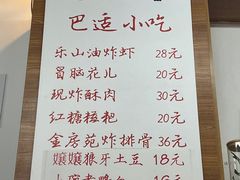 巴适小吃
乐山油炸虾 28元
冒脑花儿 20元
现炸酥肉 30元
红糖糍粑 20元
金房苑炸排骨 36元
嬢嬢狼牙土豆 18元